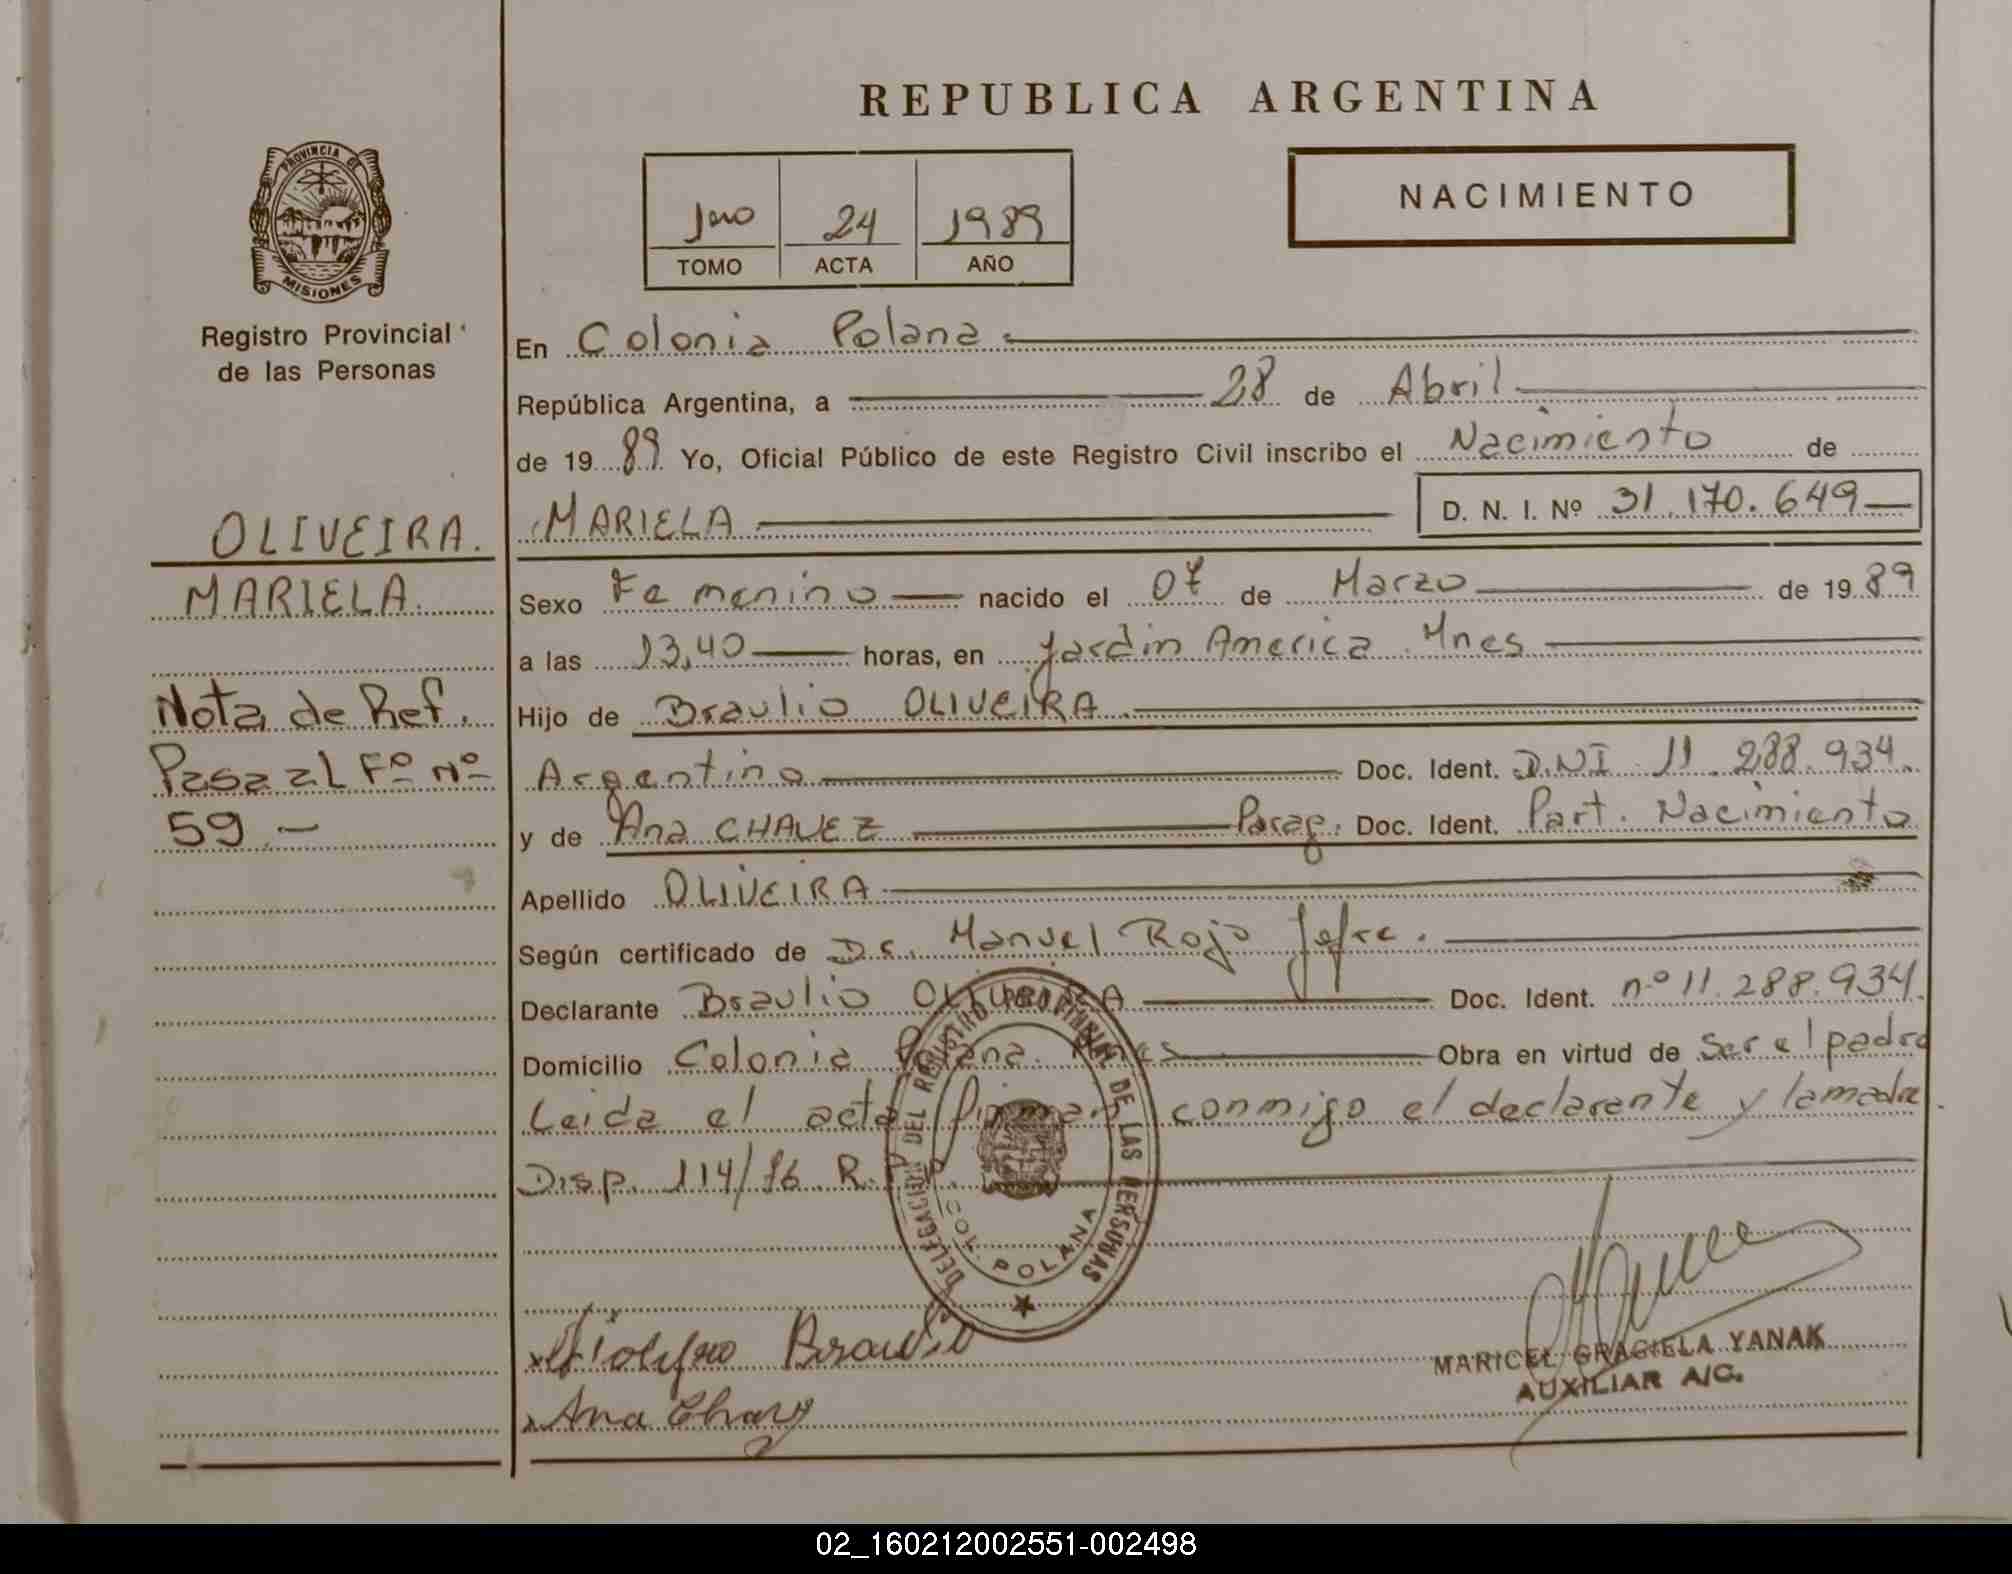 REPUBLICA ARGENTINA
PROVINCIA DE
MISIONES
Registro Provincial
de las Personas
1ero 24 1989
TOMO ACTA AÑO
NACIMIENTO
OLIVEIRA.
MARIELA
Nota de Ref.
Pasa al Fº Nº
59.-
En Colonia Polana
República Argentina, a 28 de Abril
de 1989 Yo, Oficial Público de este Registro Civil inscribo el Nacimiento de
MARIELA D. N. I. Nº 31.170.649
Sexo Femenino nacido el 07 de Marzo de 1989
a las 13,40 horas, en Jardin America Mnes
Hijo de Braulio OLIVEIRA
Argentino Doc. Ident. D.N.I 11.288.934.
y de Ana CHAVEZ Parag. Doc. Ident. Part. Nacimiento
Apellido OLIVEIRA
Según certificado de Dr. Manuel Rojo Jofre.
Declarante Braulio OLIVEIRA Doc. Ident. nº 11.288.934.
Domicilio Colonia Polana. Mnes Obra en virtud de ser el padre
Leida el acta firman conmigo el declarante y la madre.
Disp. 114/76 R.
DELEGACION DEL REGISTRO PROVINCIAL DE LAS PERSONAS
COL. POLANA
Braulio
Ana Chavez
MARICEL GRACIELA YANAK
AUXILIAR A/C.
02_160212002551-002498